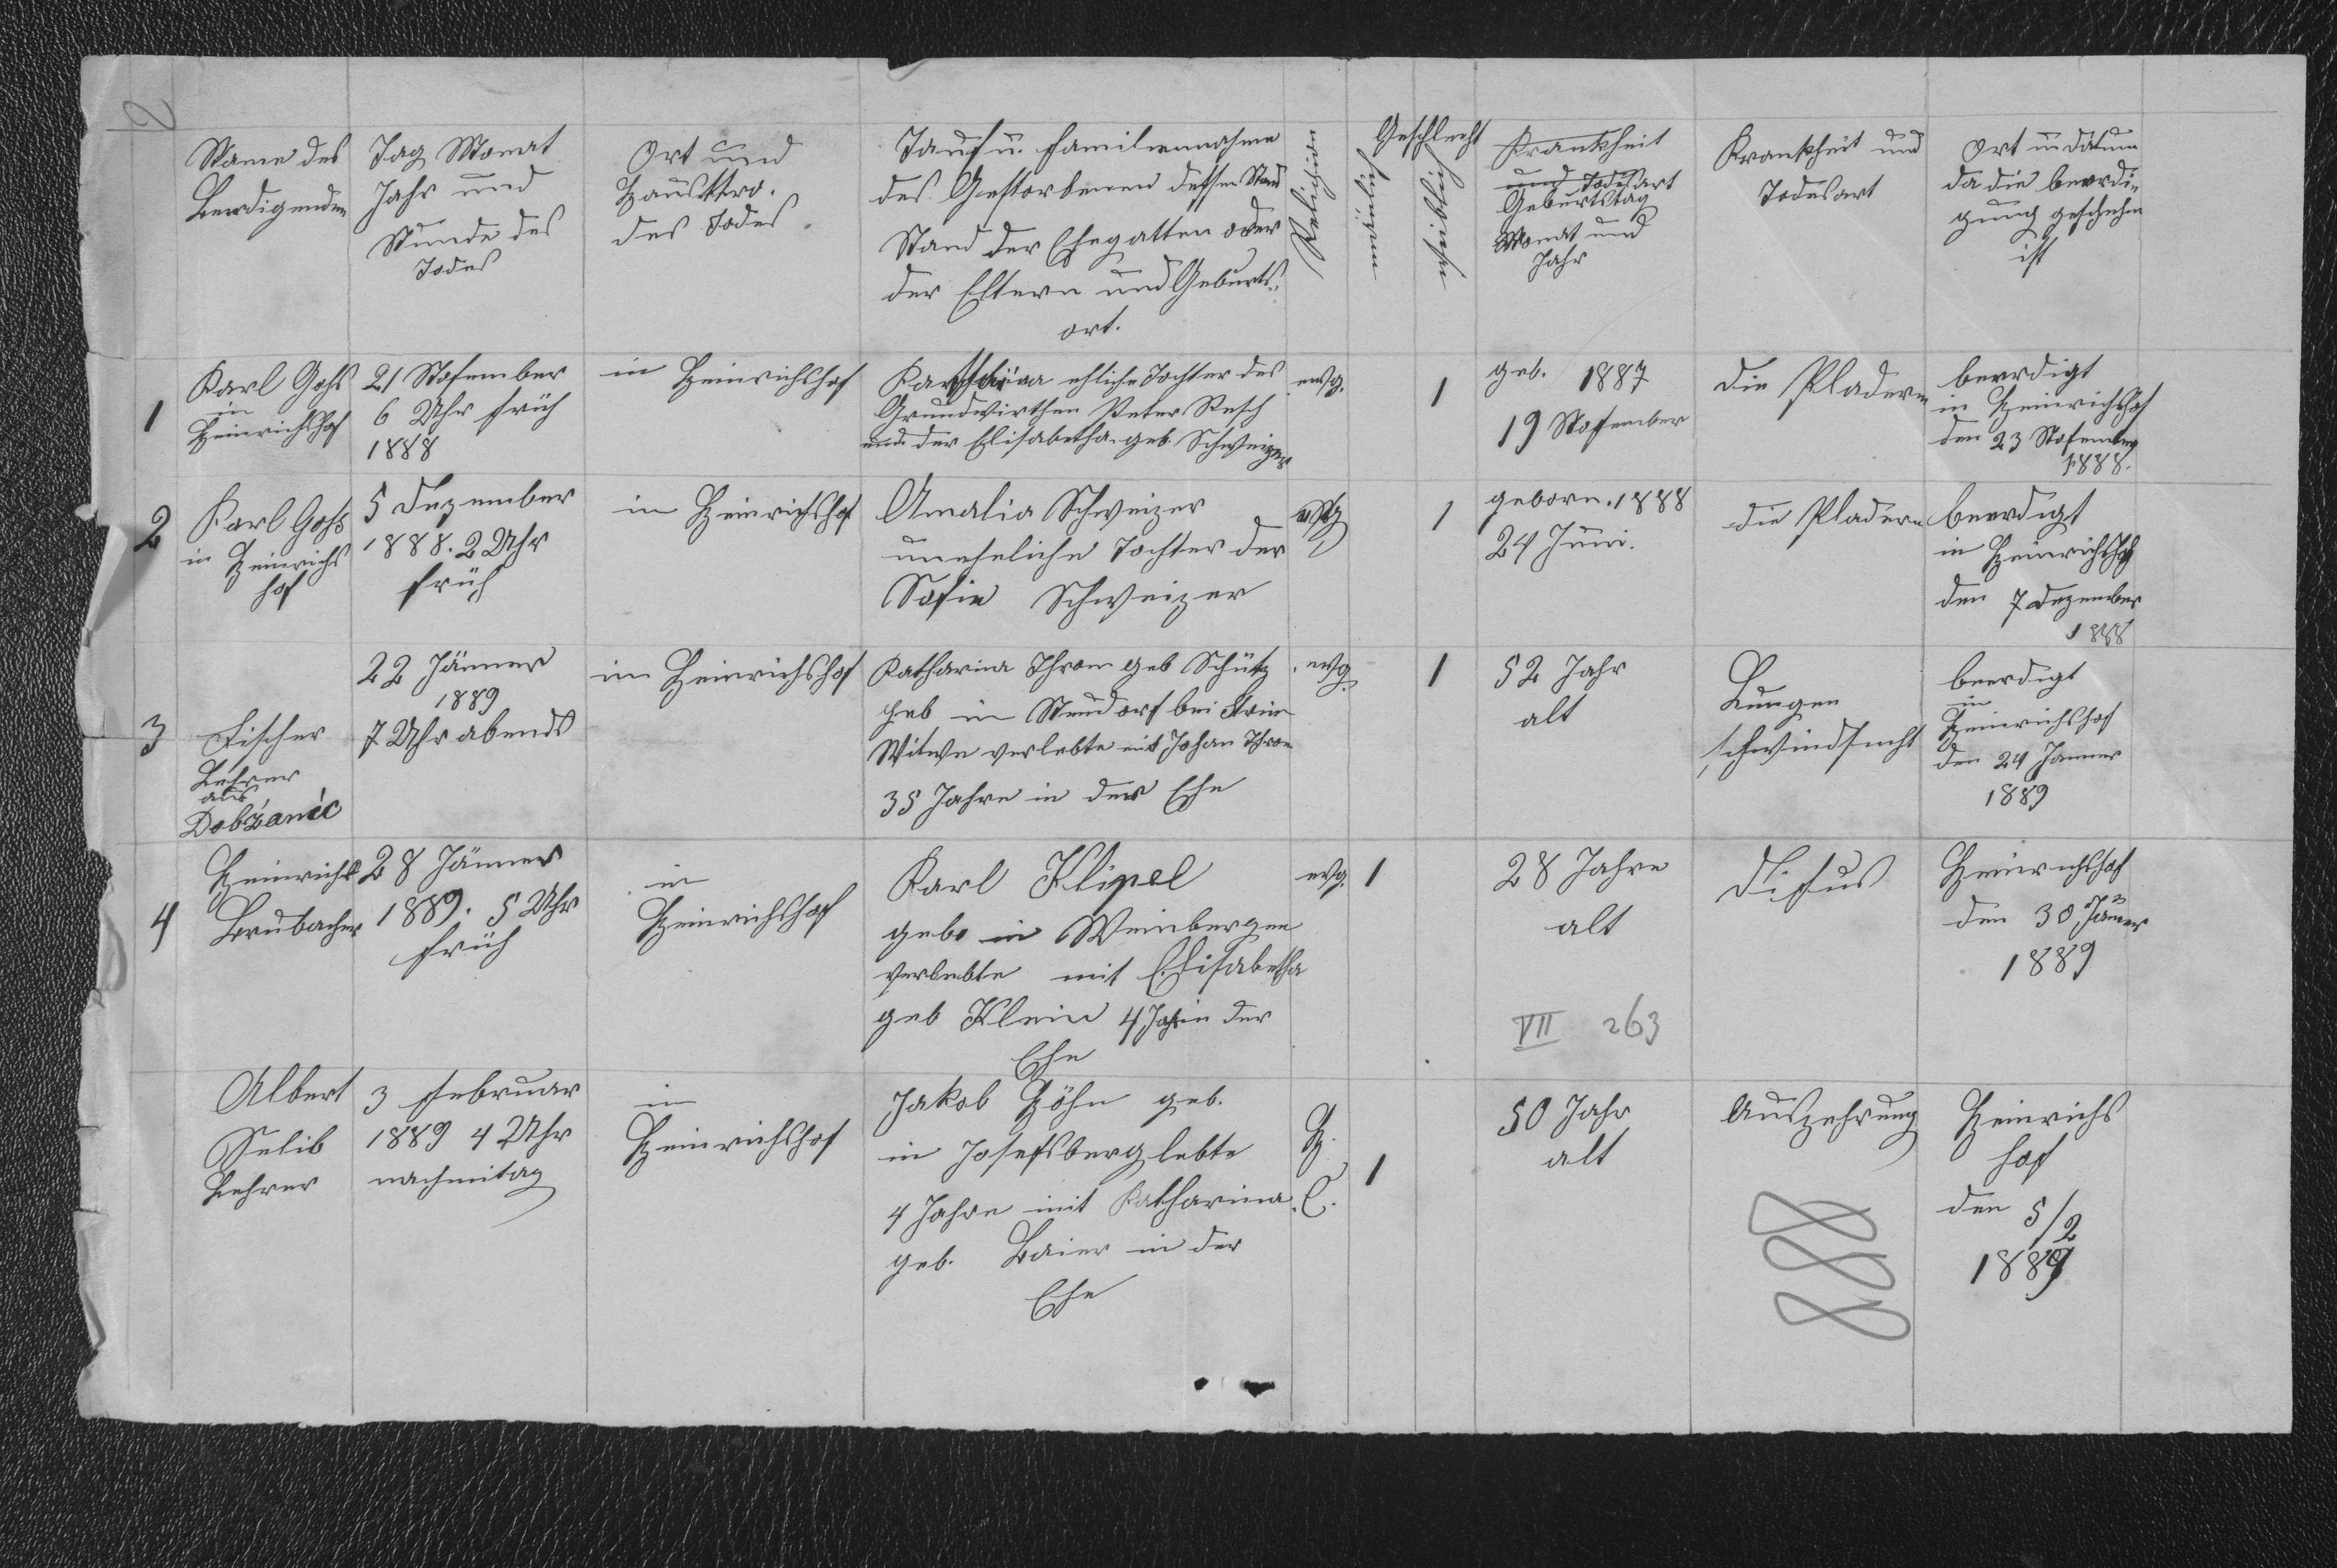 2
Name des
Beerdigenden
Tag Monat
Jahr und
Stunde des
Todes
Ort und
Haustro.
des Todes.
Tauf u. Familiennahme
des Gestorbenen dessen Stand
Stand der Ehegatten oder
der Eltern und Geburts-
ort.
Religion
Geschlecht
mänlich
weiblich
Krankheit
und Todesart
Geburtstag
Monat und
Jahr
Krankheit und
Todesart
Ort u datum
da die beerdi-
gung geschehen
ist
1
Karl Gohs
in
Heinrichshof
21 Nofember
6 Uhr früh
1888
in Heinrichshof
Katharina ehliche Tochter des
Grundwirthen Peter Resch
und der Elisabetha geb. Schweizer
evg.
1
geb. 1887
19 Nofember
die Pladern
beerdigt
in Heinrichshof
den 23 Nofember
1888.
2
Karl Gohs
in Heinrichs
hof
5 Dezember
1888. 2 Uhr
früh
in Heinrichshof
Amalia Schweizer
uneheliche Tochter der
Sofie Schweizer
evg
1
geboren. 1888
24 Juni.
die Pladern
beerdigt
in Heinrichshof
den 7 Dezember
1888
3
Fischer
Lehrer
aus
Dobzanic
22 Jänner
1889
7 Uhr abends
in Heinrichshof
Katharina Throm geb Schütz
geb in Neudorf bei
Witwe verlebte mit Johan Throm
35 Jahre in der Ehe
evg.
1
52 Jahr
alt
Lungen
schwindsucht
beerdigt
in
Heinrichshof
den 24 Janner
1889
4
Heinrich
Brubacher
28 Jänner
1889. 5 Uhr
früh
in
Heinrichshof
Karl Klipel
geb. in Weinbergen
verlebte mit Elisabetha
geb Klein 4 Jahr in der
Ehe
evg.
1
28 Jahre
alt
VII 263
Tifus
Heinrichshof
den 30 Jäner
1889
Albert
Selib
Lehrer
3 Februar
1889 4 Uhr
nachmitag
in
Heinrichshof
Jakob Höhn geb.
in Josefsberg lebte
4 Jahre mit Katharina
geb. Baier in der
Ehe
H.
C.
1
50 Jahr
alt
Auszehrung
Heinrichs
hof
den 5/2
1889